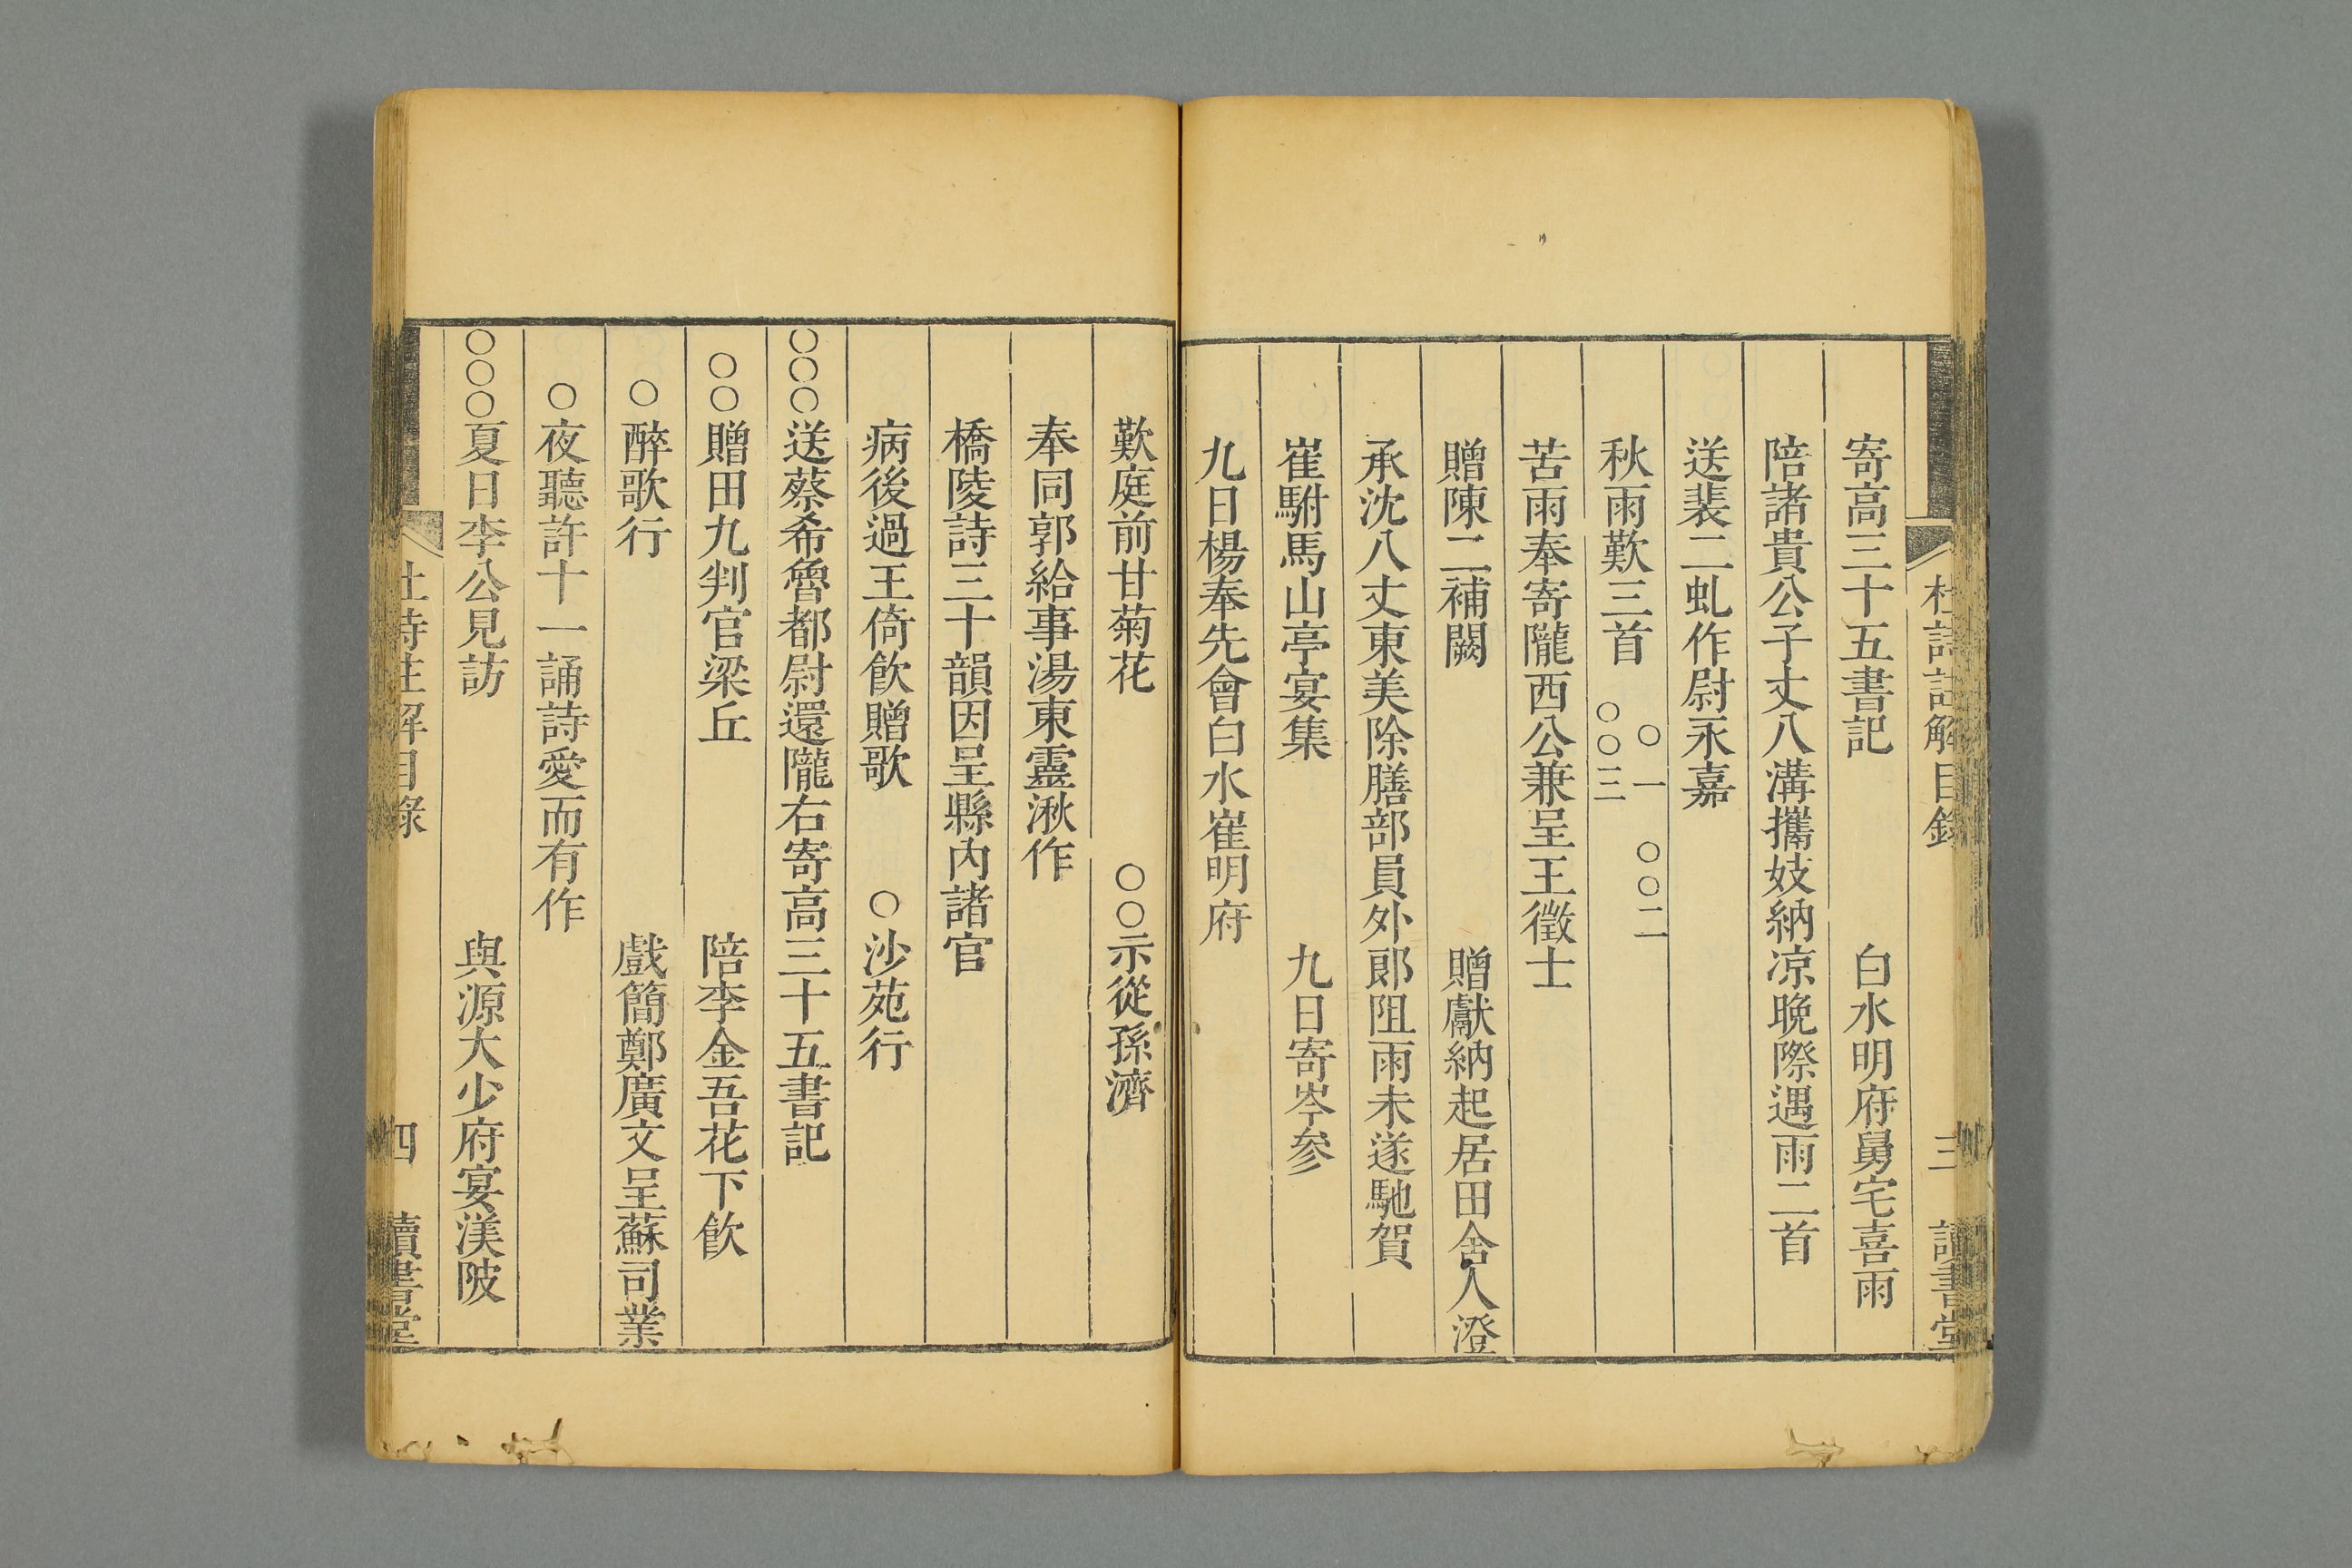 杜詩註解目錄 三 讀書堂
寄高三十五書記 白水明府舅宅喜雨
陪諸貴公子丈八溝攜妓納凉晚際遇雨二首
送裴二虬作尉永嘉
秋雨歎三首 ○一 ○○二 ○○三
苦雨奉寄隴西公兼呈王徵士
贈陳二補闕 贈獻納起居田舍人澄
承沈八丈東美除膳部員外郎阻雨未遂馳賀
崔駙馬山亭宴集 九日寄岑參
九日楊奉先會白水崔明府
歎庭前甘菊花 ○○示從孫濟
奉同郭給事湯東靈湫作
橋陵詩三十韻因呈縣內諸官
病後過王倚飲贈歌 ○沙苑行
○○○送蔡希魯都尉還隴右寄高三十五書記
○○贈田九判官梁丘 陪李金吾花下飲
○醉歌行 戲簡鄭廣文呈蘇司業
○夜聽許十一誦詩愛而有作
○○○夏日李公見訪 與源大少府宴渼陂
杜詩註解目錄 四 讀書堂